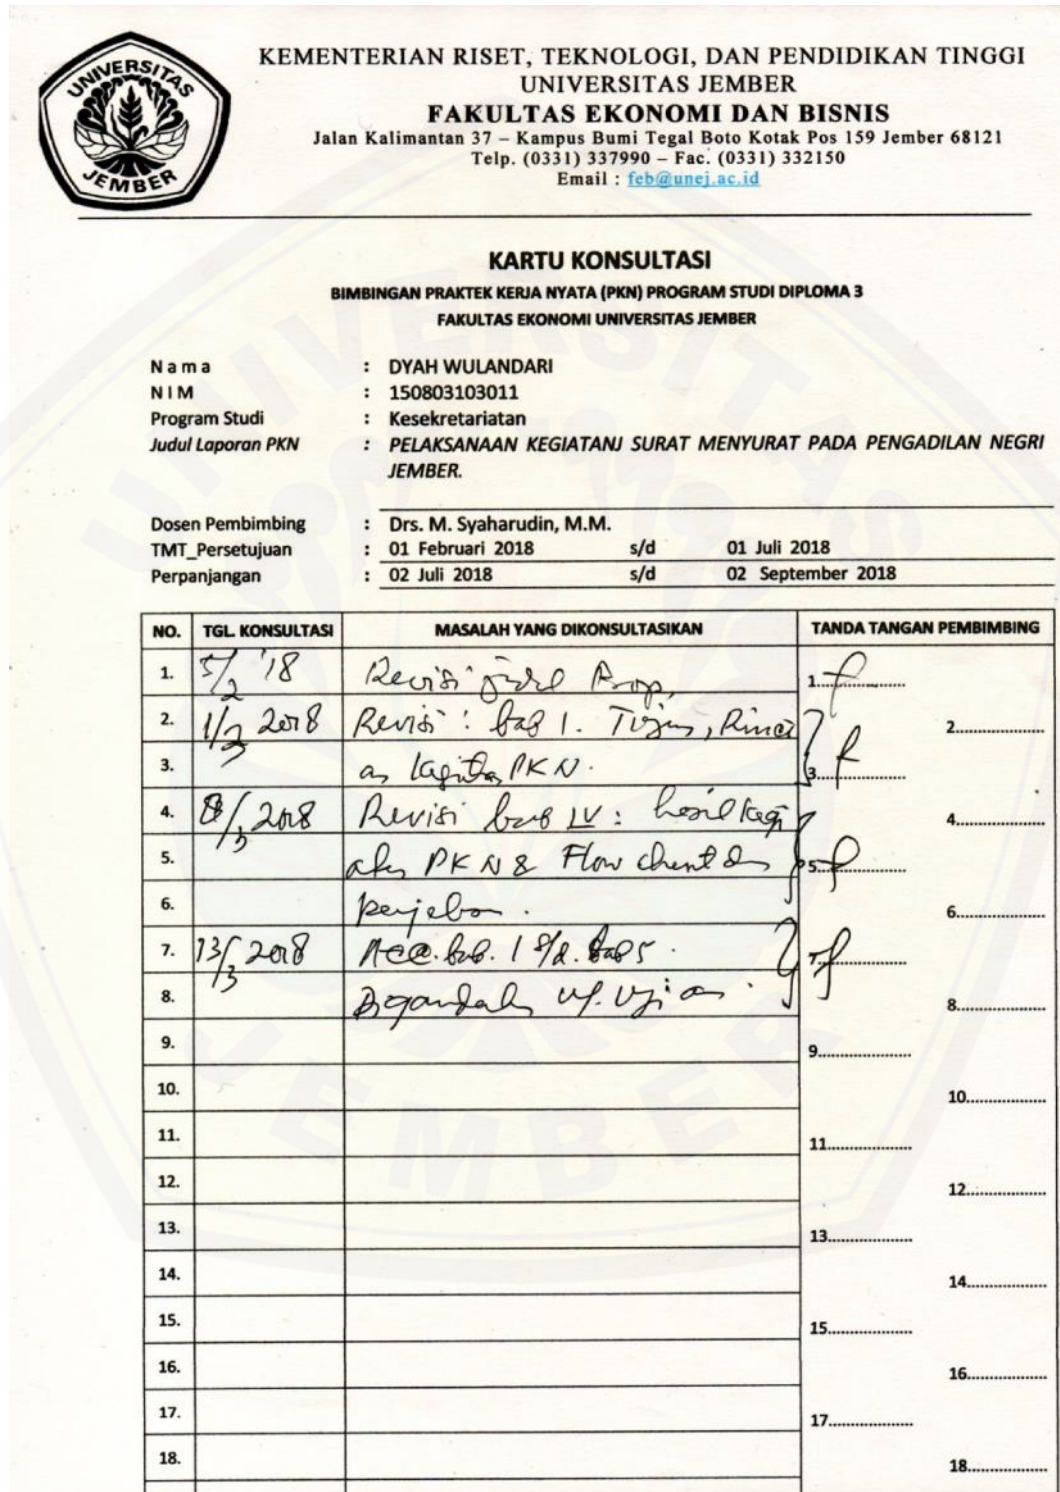 UNIVERSITAS JEMBER
KEMENTERIAN RISET, TEKNOLOGI, DAN PENDIDIKAN TINGGI
UNIVERSITAS JEMBER
FAKULTAS EKONOMI DAN BISNIS
Jalan Kalimantan 37 – Kampus Bumi Tegal Boto Kotak Pos 159 Jember 68121
Telp. (0331) 337990 – Fac. (0331) 332150
Email : feb@unej.ac.id
KARTU KONSULTASI
BIMBINGAN PRAKTEK KERJA NYATA (PKN) PROGRAM STUDI DIPLOMA 3
FAKULTAS EKONOMI UNIVERSITAS JEMBER
N a m a : DYAH WULANDARI
N I M : 150803103011
Program Studi : Kesekretariatan
Judul Laporan PKN : PELAKSANAAN KEGIATANJ SURAT MENYURAT PADA PENGADILAN NEGRI
JEMBER.
Dosen Pembimbing : Drs. M. Syaharudin, M.M.
TMT_Persetujuan : 01 Februari 2018 s/d 01 Juli 2018
Perpanjangan : 02 Juli 2018 s/d 02 September 2018
NO. TGL. KONSULTASI MASALAH YANG DIKONSULTASIKAN TANDA TANGAN PEMBIMBING
1. 5/2 '18 Revisi Prop. 1.
2. 1/3 2018 Revisi : bab 1. Tujuan, 2.
3. PKN. 3.
4. 8/3 2018 Revisi bab IV : hasil 4.
5. PKN & Flow chart 5.
6. 6.
7. 13/3 2018 Acc. bab. 1 s/d. bab 5. 7.
8. ujian. 8.
9. 9.
10. 10.
11. 11.
12. 12.
13. 13.
14. 14.
15. 15.
16. 16.
17. 17.
18. 18.